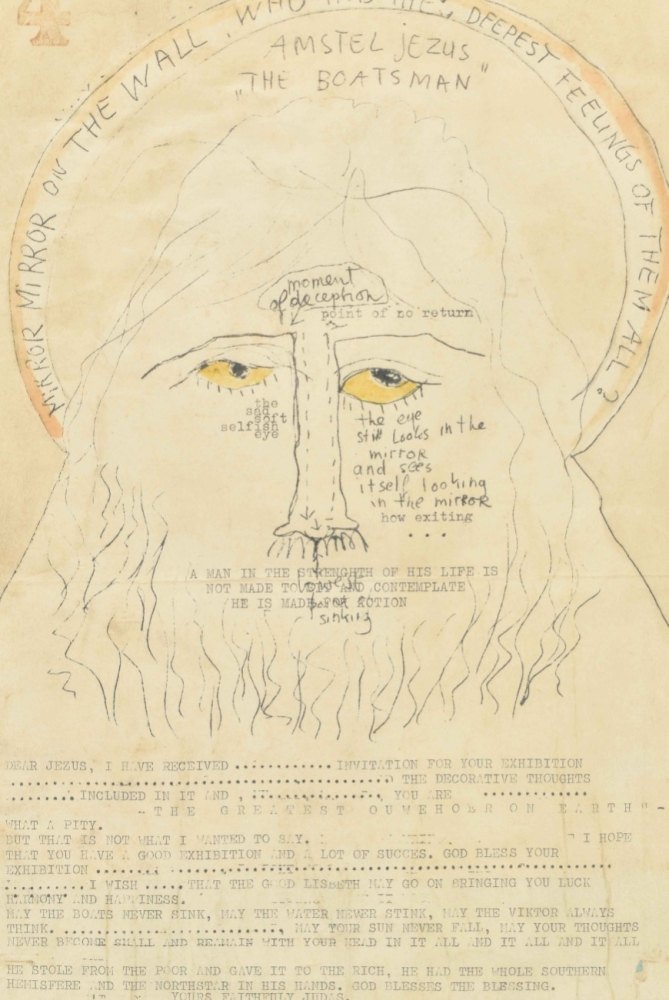 MIRROR MIRROR ON THE WALL. WHO HAS THE DEEPEST FEELINGS OF THEM ALL?
AMSTEL JEZUS
"THE BOATSMAN"
moment
of deception
point of no return
the
sad
soft
selfish
eye
the eye
still looks in the
mirror
and sees
itself looking
in the mirror
how exiting
...
A MAN IN THE STRENGHTH OF HIS LIFE IS
NOT MADE TO AND CONTEMPLATE
HE IS MADE FOR ACTION
sinking
DEAR JEZUS, I HAVE RECEIVED ............ INVITATION FOR YOUR EXHIBITION
THE DECORATIVE THOUGHTS
INCLUDED IN IT AND , YOU ARE ............
-THE GREATEST OUWEHOER ON EARTH"-
WHAT A PITY.
BUT THAT IS NOT WHAT I WANTED TO SAY. I HOPE
THAT YOU HAVE A GOOD EXHIBITION AND A LOT OF SUCCES. GOD BLESS YOUR
EXHIBITION
I WISH ..... THAT THE GOOD LISBETH MAY GO ON BRINGING YOU LUCK
HARMONY AND HAPPINESS.
MAY THE BOATS NEVER SINK, MAY THE WATER NEWER STINK, MAY THE VIKTOR ALWAYS
THINK. ............, MAY YOUR SUN NEVER FALL, MAY YOUR THOUGHTS
NEVER BECOME SMALL AND REMAIN WITH YOUR HEAD IN IT ALL AND IT ALL AND IT ALL
HE STOLE FROM THE POOR AND GAVE IT TO THE RICH, HE HAD THE WHOLE SOUTHERN
HEMISFERE AND THE NORTHSTAR IN HIS HANDS. GOD BLESSES THE BLESSING.
YOURS FAITHFULLY JUDAS.